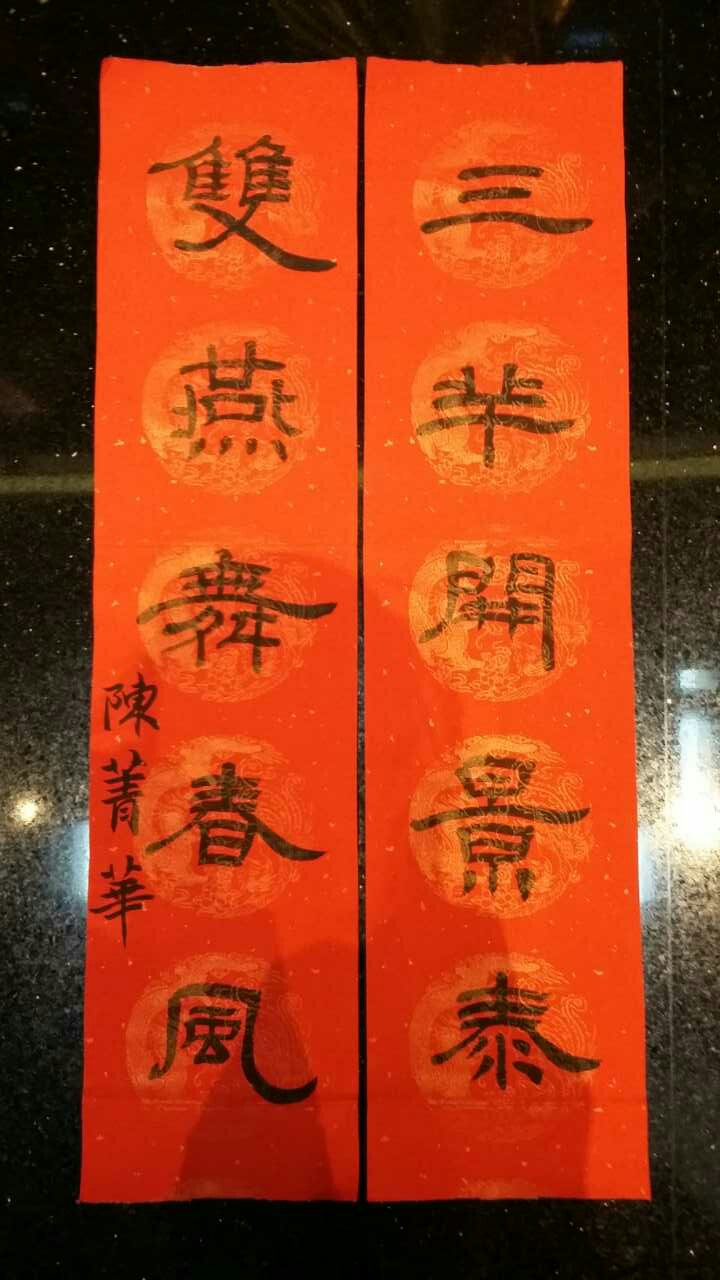 三羊開景泰
雙燕舞春風
陳菁華